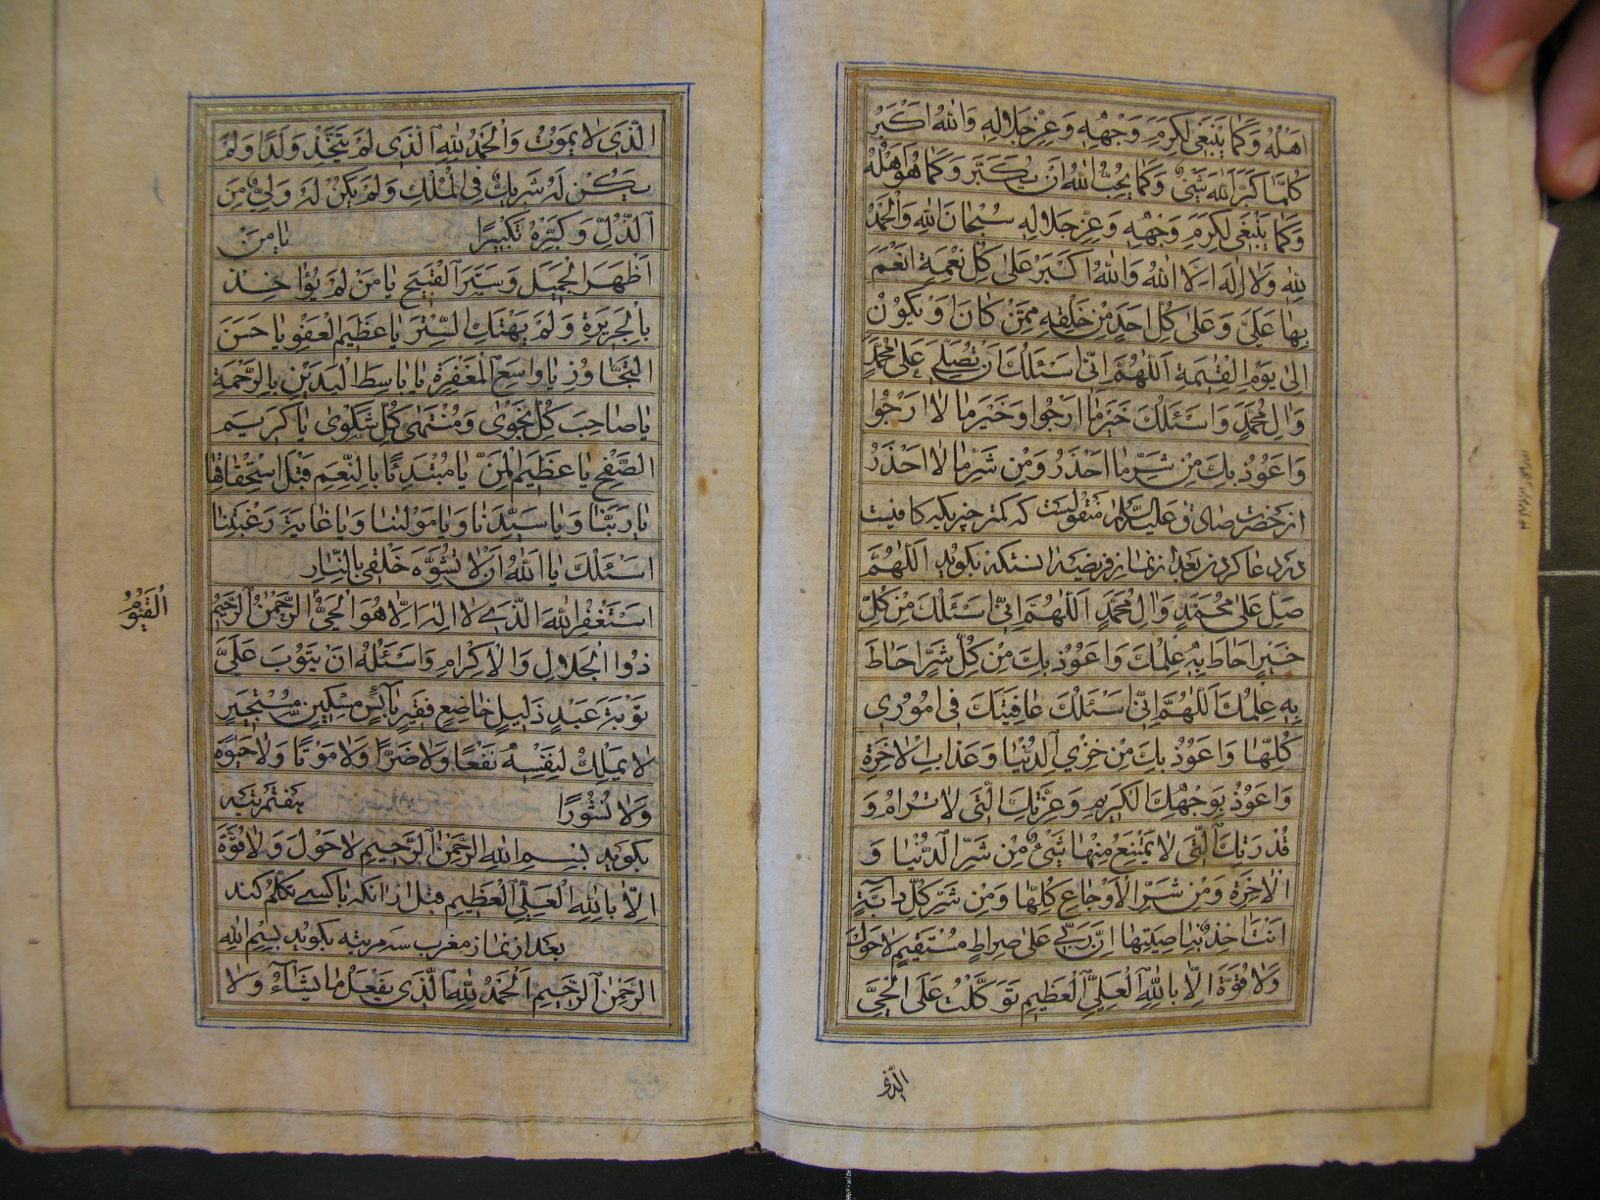 اَهْلُهُ وَكَمٰا يَنْبَغى لِكَرَمِ وَجْهِهِ وَعِزِّ جَلالِهِ وَاللهُ اَكْبَرُ
كُلَّمٰا كَبَّرَ اللهَ شَىْءٌ وَكَمٰا يُحِبُّ اللهُ اَنْ يُكَبَّرَ وَكَمٰا هُوَ اَهْلُهُ
وَكَمٰا يَنْبَغى لِكَرَمِ وَجْهِهِ وَعِزِّ جَلالِهِ سُبْحٰانَ اللهِ وَالْحَمْدُ
لِلّٰهِ وَلا اِلٰهَ اِلَّا اللهُ وَاللهُ اَكْبَرُ عَلىٰ كُلِّ نِعْمَةٍ اَنْعَمَ
بِهٰا عَلَىَّ وَعَلىٰ كُلِّ اَحَدٍ مِنْ خَلْقِهِ مِمَّنْ كٰانَ اَوْ يَكُونُ
اِلىٰ يَوْمِ الْقِيٰمَةِ اَللّٰهُمَّ اِنّى اَسْئَلُكَ اَنْ تُصَلِّىَ عَلىٰ مُحَمَّدٍ
وَاٰلِ مُحَمَّدٍ وَاَسْئَلُكَ خَيْرَ مٰا اَرْجُوا وَخَيْرَ مٰا لٰا اَرْجُوا
وَاَعُوذُ بِكَ مِنْ شَرِّ مٰا اَحْذَرُ وَمِنْ شَرِّ مٰا لٰا اَحْذَرُ
از حضرت صادق عليه السلام منقولست كه كمتر چيزيكه كافيست
در دعا كردن بعد از نماز فريضه انستكه بكويد اَللّٰهُمَّ
صَلِّ عَلىٰ مُحَمَّدٍ وَاٰلِ مُحَمَّدٍ اَللّٰهُمَّ اِنّى اَسْئَلُكَ مِنْ كُلِّ
خَيْرٍ اَحٰاطَ بِهِ عِلْمُكَ وَاَعُوذُ بِكَ مِنْ كُلِّ شَرٍّ اَحٰاطَ
بِهِ عِلْمُكَ اَللّٰهُمَّ اِنّى اَسْئَلُكَ عٰافِيَتَكَ فى اُمُورى
كُلِّهٰا وَاَعُوذُ بِكَ مِنْ خِزْىِ الدُّنْيٰا وَعَذٰابِ الْاٰخِرَةِ
وَاَعُوذُ بِوَجْهِكَ الْكَريمِ وَعِزَّتِكَ الَّتى لٰا تُرٰامُ وَ
قُدْرَتِكَ الَّتى لٰا يَمْتَنِعُ مِنْهٰا شَىْءٌ مِنْ شَرِّ الدُّنْيٰا وَ
الْاٰخِرَةِ وَمِنْ شَرِّ الْاَوْجٰاعِ كُلِّهٰا وَمِنْ شَرِّ كُلِّ دٰابَّةٍ
اَنْتَ اٰخِذٌ بِنٰاصِيَتِهٰا اِنَّ رَبّى عَلىٰ صِرٰاطٍ مُسْتَقيمٍ لٰا حَوْلَ
وَلٰا قُوَّةَ اِلّٰا بِاللهِ الْعَلِىِّ الْعَظيمِ تَوَكَّلْتُ عَلَى الْحَىِّ
الّذى
الَّذى لٰا يَمُوتُ وَالْحَمْدُ لِلّٰهِ الَّذى لَمْ يَتَّخِذْ وَلَدًا وَلَمْ
يَكُنْ لَهُ شَريكٌ فِى الْمُلْكِ وَلَمْ يَكُنْ لَهُ وَلِىٌّ مِنَ
الذُّلِّ وَكَبِّرْهُ تَكْبيرًا يٰا مَنْ
اَظْهَرَ الْجَميلَ وَسَتَرَ الْقَبيحَ يٰا مَنْ لَمْ يُؤٰاخِذْ
بِالْجَريرَةِ وَلَمْ يَهْتِكِ السِّتْرَ يٰا عَظيمَ الْعَفْوِ يٰا حَسَنَ
التَّجٰاوُزِ يٰا وٰاسِعَ الْمَغْفِرَةِ يٰا بٰاسِطَ الْيَدَيْنِ بِالرَّحْمَةِ
يٰا صٰاحِبَ كُلِّ نَجْوىٰ وَمُنْتَهىٰ كُلِّ شَكْوىٰ يٰا كَريمَ
الصَّفْحِ يٰا عَظيمَ الْمَنِّ يٰا مُبْتَدِئًا بِالنِّعَمِ قَبْلَ اسْتِحْقٰاقِهٰا
يٰا رَبَّنٰا وَيٰا سَيِّدَنٰا وَيٰا مَوْلٰينٰا وَيٰا غٰايَةَ رَغْبَتِنٰا
اَسْئَلُكَ يٰا اَللهُ اَنْ لٰا تُشَوِّهَ خَلْقى بِالنّٰارِ
اَسْتَغْفِرُ اللهَ الَّذى لٰا اِلٰهَ اِلّٰا هُوَ الْحَىُّ الرَّحْمٰنُ الرَّحيمُ
الْقَيُّومُ
ذُوا الْجَلالِ وَالْاِكْرٰامِ وَاَسْئَلُهُ اَنْ يَتُوبَ عَلَىَّ
تَوْبَةَ عَبْدٍ ذَليلٍ خٰاضِعٍ فَقيرٍ بٰائِسٍ مِسْكينٍ مُسْتَجيرٍ
لٰا يَمْلِكُ لِنَفْسِهِ نَفْعًا وَلٰا ضَرًّا وَلٰا مَوْتًا وَلٰا حَيٰوةً
وَلٰا نُشُورًا هفتمرتبه
بكويد بِسْمِ اللهِ الرَّحْمٰنِ الرَّحيمِ لٰا حَوْلَ وَلٰا قُوَّةَ
اِلّٰا بِاللهِ الْعَلِىِّ الْعَظيمِ قبل از انكه با كسى تكلم كند
بعد از نماز مغرب سه مرتبه بكويد بِسْمِ اللهِ
الرَّحْمٰنِ الرَّحيمِ اَلْحَمْدُ لِلّٰهِ الَّذى يَفْعَلُ مٰا يَشٰاءُ وَلٰا